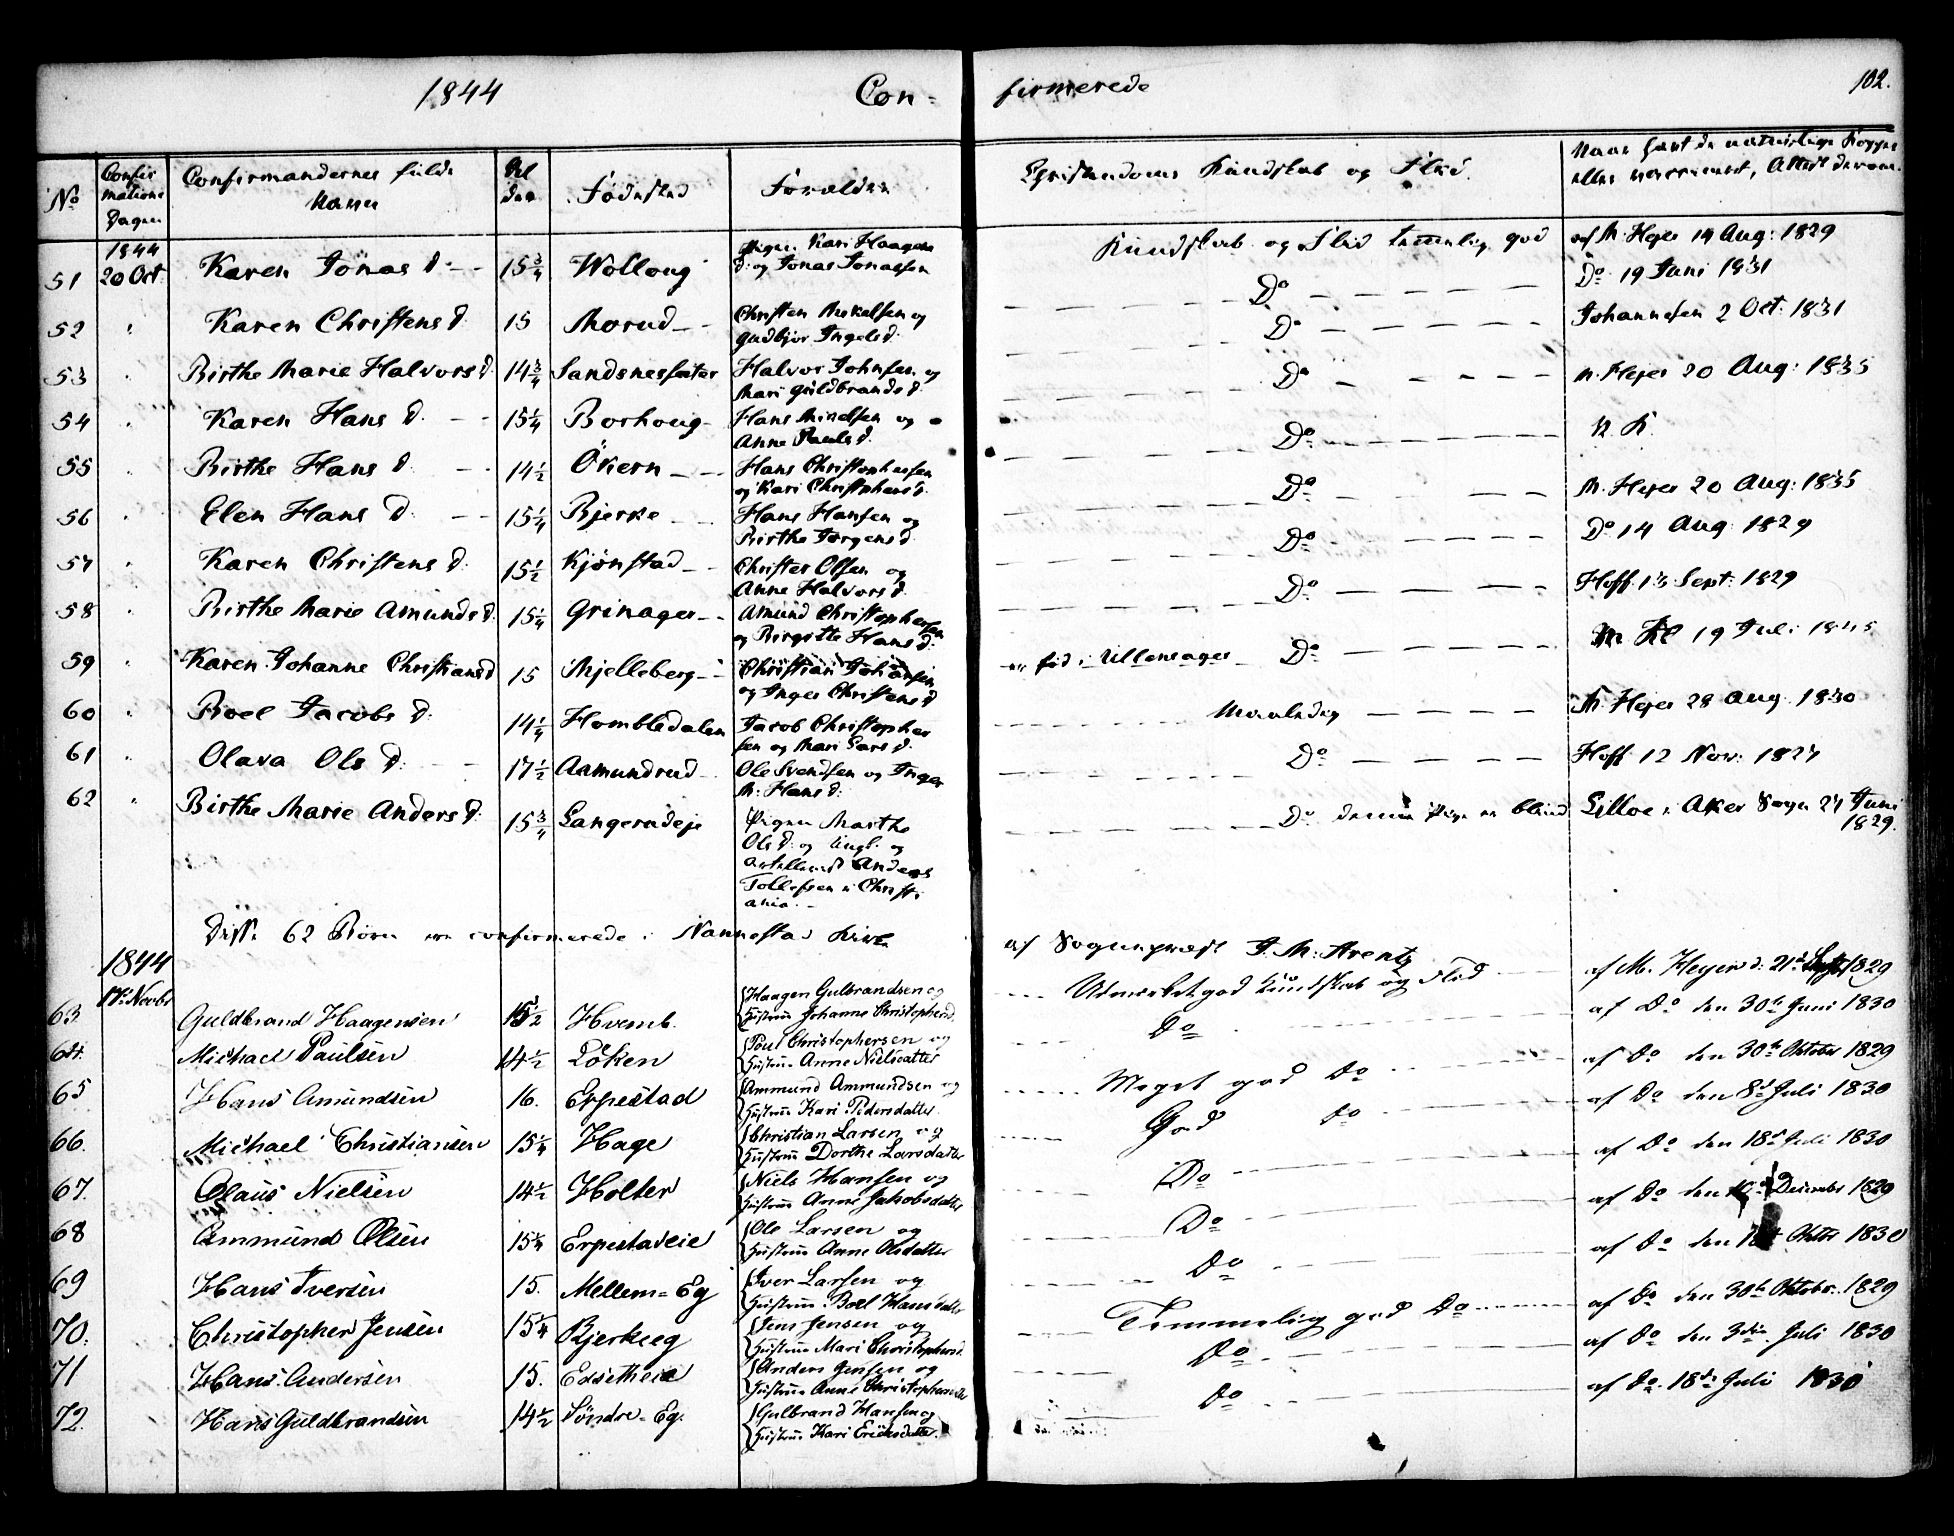 1844 Con- firmerede 102.
No Confirmations Dagen Confirmandernes fulde Navn Alder Fødested Forældre Christendoms Kundskab og Flid. Naar havt de naturlige Kopper eller vaccineret, Attest derom.
1844
51 20 Oct Karen Jonas d. 15 3/4 Wolloug Pigen Kari Haagens d. og Jonas Jonassen Kundskab og Flid temmelig god af M. Hejer 14 Aug: 1829
52 Karen Christens d. 15 Morud Christen Mikelsen og Gudbjør Ingels d. Do Do 19 Juni 1831
53 Birthe Marie Halvors d. 14 3/4 Sandsnesseter Halvor Johnsen og Mari Guldbrands d. Do Johannesen 2 Oct: 1831
54 Karen Hans d. 15 1/4 Borhoug Hans Mikelsen og Anne Pauls d. Do M. Hejer 20 Aug: 1835
55 Birthe Hans d. 14 1/2 Økern Hans Christophersen og Kari Christophers d. Do N. K.
56 Elen Hans d. 15 1/4 Bjerke Hans Hansen og Birthe Jørgens d. Do M. Hejer 20 Aug: 1835
57 Karen Christens d. 15 1/2 Kjønstad Christen Olsen og Anne Halvors d. Do Do 14 Aug 1829
58 Birthe Marie Amunds d. 15 1/4 Grinager Amund Christophersen og Birgitte Hans d. Do Hoff 13 Sept: 1829
59 Karen Johanne Christians d 15 Mjelleberg Christian Johansen og Inger Christens d er fød i Ullensager Do 19 Juli 1845
60 Roel Jacobs d. 14 1/4 Hombledalen Jacob Christophersen og Mari Lars d. Maadelig M. Hejer 28 Aug 1830
61 Olava Ols d. 17 1/2 Aamundrud Ole Svendsen og Inger M. Hans d. Do Hoff 12 Nov: 1827
62 Birthe Marie Anders d. 15 3/4 Langerudeje Pigen Marthe Ols d. og Ungk. og Artillerist Anders Tollefsen i Christiania. Do denne Pige er blind Lilloe i Aker Sogn 27 Juni 1829.
Disse 62 Børn ere confirmerede i Nannestad Kirke af Sognepræst J. M. Arentz
1844
17de Novbr
63. Guldbrand Haagensen 15 1/2 Hvemb. Haagen Gulbrandsen og Hustrue Johanne Christophersd. Udmærket god Kundskab og Flid af M. Heyer d. 21de 1829
64. Michael Paulsen 14 1/2 Löken Poul Christophersen og Hustrue Anne Nielsdatter Do af Do den 30te Juni 1830
65 Hans Amundsen 16. Erpestad Ammund Ammundsen og Hustrue Kari Pedersdatter Meget god Do af Do den 30te Oktober 1829
66. Michael Christiansen 15 1/4 Hage Christian Larsen og Hustrue Dorthe Larsdatter God do af Do den 8de Juli 1830
67. Claus Nielsen 14 1/2 Holter Niels Hansen og Hustrue Anne Jakobsdatter Do af Do den 18de Juli 1830
68 Ammund Olsen 15 1/4 Erpestadeie Ole Larsen og Hustrue Anne Olsdatter Do af Do den Decembr 1829
69 Hans Iversen 15. Mellem-Eg Iver Larsen og Hustrue Boel Hansdatter Do af Do den Oktbr 1830
70. Christopher Jensen 15 1/4 Bjerkeeg Jens Jensen og Hustrue Mari Christophersd. Temmelig god Do af Do den 30te Oktober 1829
71 Hans Andersen 15. Anders Jensen og Hustrue Anne Christophersdtr Do af Do den 3die Juli 1830
72. Hans Guldbrandsen 14 1/2 Søndre-Eg. Gulbrand Hansen og Hustrue Kari Eriksdatter. Do af Do 18de Juli 1830